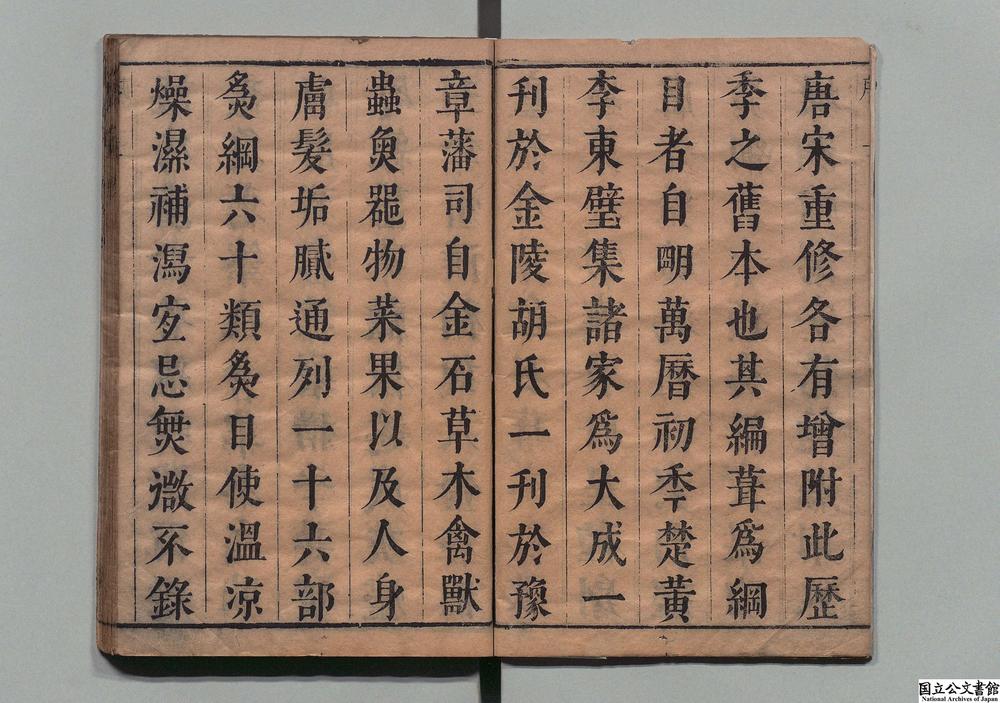 唐宋重修各有增附此歷
季之舊本也其編葺爲綱
目者自明萬曆初季楚黃
李東璧集諸家爲大成一
刊於金陵胡氏一刊於豫
章藩司自金石草木禽獸
蟲魚器物菜果以及人身
膚髮垢膩通列一十六部
為綱六十類為目使溫涼
燥濕補瀉宜忌無微不錄
国立公文書館
National Archives of Japan